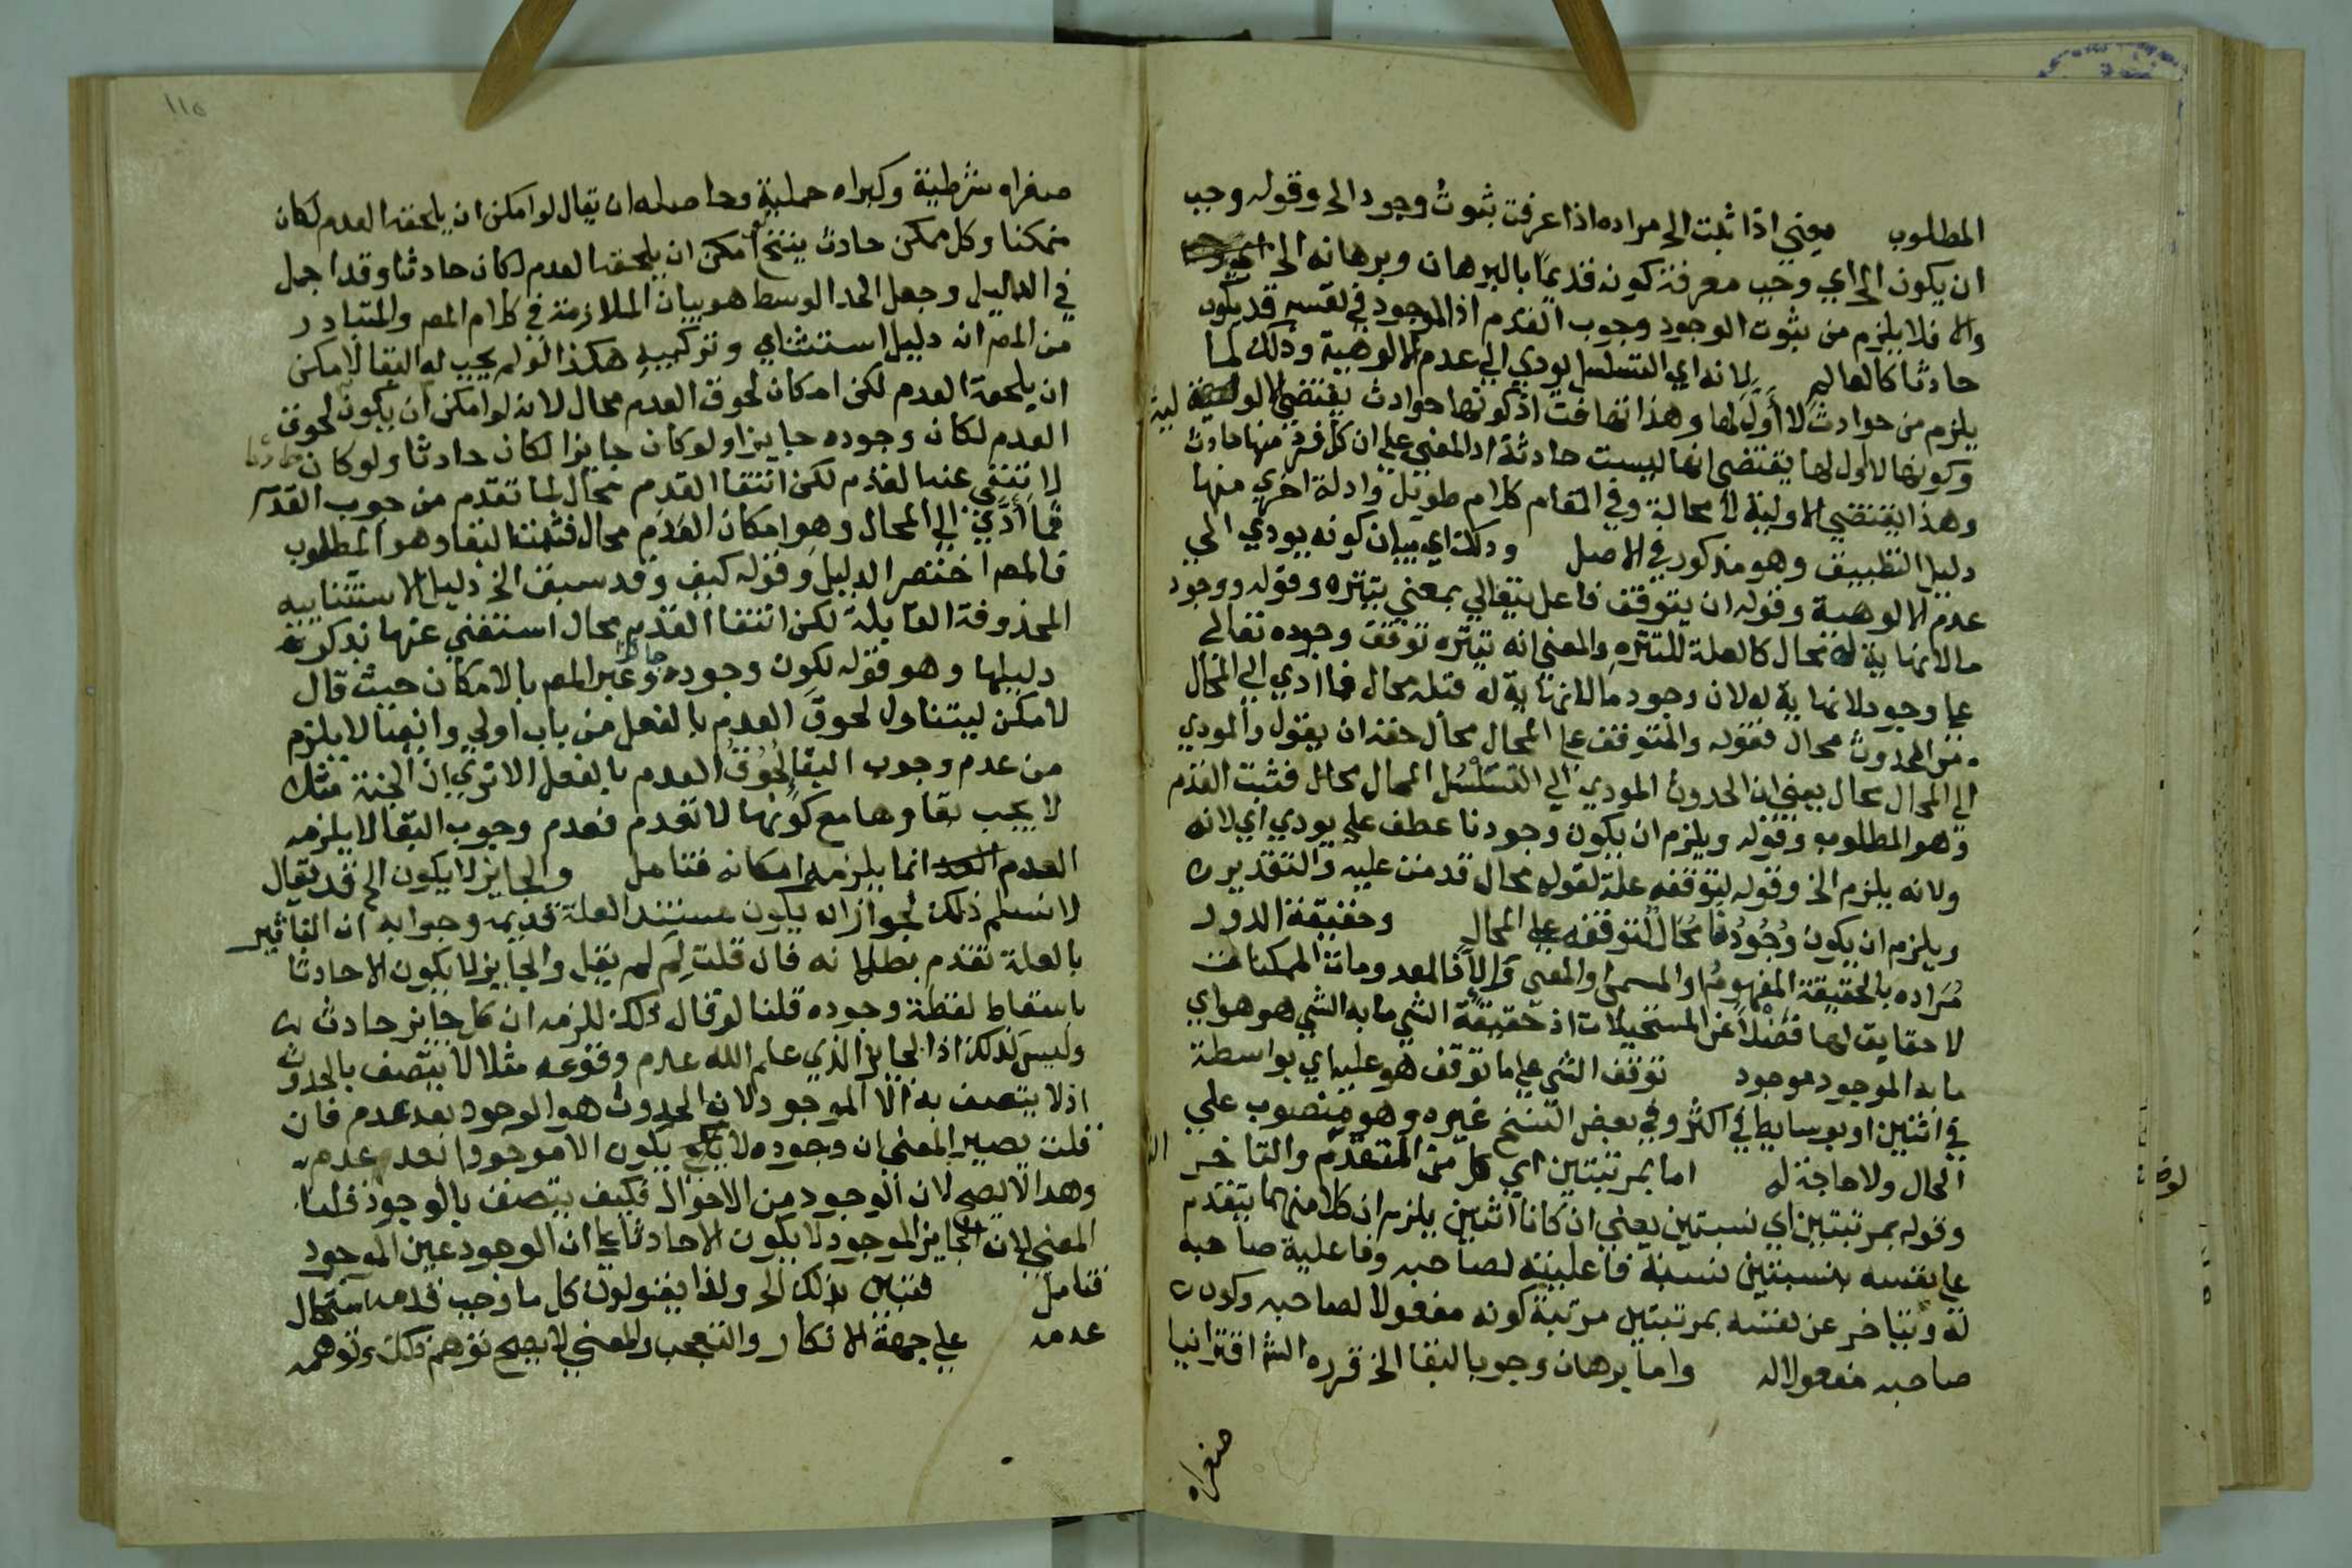 المطلوب يعني اذا ثبت الخ مراده اذا عرفت ثبوت وجود الخ وقوله وجب
ان يكون الخ اي وجب معرفة كونه قديما بالبرهان وبرهانه الخ
والا فلا يلزم من ثبوت الوجود وجوب القدم اذ الموجود في نفسه قد يكون
حادثا كالعالم لانه اي التسلسل يودي الي عدم الالوهية وذلك لما
يلزم من حوادث لا أول لها وهذا تهافت اذ كونها حوادث يقتضي الاولية
وكونها لا اول لها يقتضي انها ليست حادثة اذ المعني علي ان كل فرد منها حادث
وهذا يقتضي الاولية لا محالة وفي المقام كلام طويل وادلة اخري منها
دليل التطبيق وهو مذكور في الاصل وذلك اي بيان كونه يودي الي
عدم الالوهية وقوله ان يتوقف فاعل يتعالي بمعني يتنزه وقوله ووجود
ما لا نهاية له محال كالعلة للتنزه والمعني انه تنزه توقف وجوده تعالي
علي وجود لا نهاية له لان وجود ما لا نهاية له قبله محال فما ادي الي المحال
من الحدوث محال فقوله والمتوقف علي المحال محال حقه ان يقول والمودي
الي المحال محال يعني ان الحدوث المودي الي التسلسل المحال محال فثبت القدم
وهو المطلوب وقوله ويلزم ان يكون وجودنا عطف علي يودي اي لانه
ولانه يلزم الخ وقوله لتوقفه علة لقوله محال قدمت عليه والتقدير
ويلزم ان يكون وُجُودُنا مُحَالًا لتوقفه علي المحال وحقيقة الدور
مُرَاده بالحقيقة المفهومُ او المسمي والمعني والا فالمعدومات الممكنات
لا حقايق لها فضْلاً عن المستحيلات اذ حقيقة الشي ما به الشي هو هو اي
ما به الموجود موجود توقف الشي علي ما توقف هو عليه اي بواسطة
في اثنين او بوسايط في اكثر وفي بعض النسخ غيره وهو منصوب علي
الحال ولا حاجة له اما بمرتبتين اي كل من المتقدم والتاخر
وقوله بمرتبتين اي نسبتين يعني ان كانا اثنين يلزم ان كلا منهما يتقدم
علي نفسه بنسبتين نسبة فاعليته لصاحبه وفاعلية صاحبه
له ويتاخر عن نفسه بمرتبتين مرتبة كونه مفعولا لصاحبه وكون
صاحبه مفعولا له واما برهان وجوب البقا الخ قرره الش اقترانيا
صغراه
١١٥
صغراه شرطية وكبراه حملية وحاصله ان يقال لو امكن ان يلحقه العدم لكان
ممكنا وكل ممكن حادث ينتج لو امكن ان يلحقه العدم لكان حادثا وقد اجمل
في الدليل وجعل الحد الوسط هو بيان الملازمة في كلام المص والمتبادر
من المص انه دليل استثناي وتركيبه هكذا لو لم يجب له البقا لامكن
ان يلحقه العدم لكن امكان لحوق العدم محال لانه لو امكن ان يكون لحوق
العدم لكان وجوده جايزا ولو كان جايزا لكان حادثا ولو كان حادثا
لانتفي عنه القدم لكن انتفا القدم محال لما تقدم من وجوب القدم
فما أدَّي الي المحال وهو امكان العدم محال فثبت البقا وهو المطلوب
فالمص اختصر الدليل وقوله كيف وقد سبق الخ دليل الاستثناييه
المحذوفة القايلة لكن انتفا القدم محال استغني عنها بذكر
دليلها وهو قوله لكون وجوده جايزا وعبر المص بالامكان حيث قال
لامكن ليتناول لحوق العدم بالفعل من باب اولي وايضا لا يلزم
من عدم وجوب البقا لُحُوقُ العدم بالفعل الا تري ان الجنة مثلا
لا يجب بقاوها مع كونها لا تعدم فعدم وجوب البقا لا يلزمه
العدم انما يلزمه امكانه فتامل والجايز لا يكون الخ قد يقال
لا نسلم ذلك لجواز ان يكون مستند العلة قديمه وجوابه ان التاثير
بالعلة تقدم بطلانه فان قلت لِمَ لم يقل والجايز لا يكون الا حادثا
باسقاط لفظة وجوده قلنا لو قال ذلك للزم ان كل جايز حادث
وليس كذلك اذ الجايز الذي علم الله عدم وقوعه مثلا لا يتصف بالحدوث
اذ لا يتصف به الا الموجود لان الحدوث هو الوجود بعد عدم فان
قلت يصير المعني ان وجوده لا يكون الا موجودا بعد عدم
وهذا لا يصح لان الوجود من الاحوال فكيف يتصف بالوجود قلنا
المعني لان الجايز الموجود لا يكون الا حادثا علي ان الوجود عين الموجود
فتامل فتبين بذلك الخ ولذا يقولون كل ما وجب قدمه استحال
عدمه علي جهة الانكار والتعجب والمعني لا يصح توهم ذلك وتوهمه